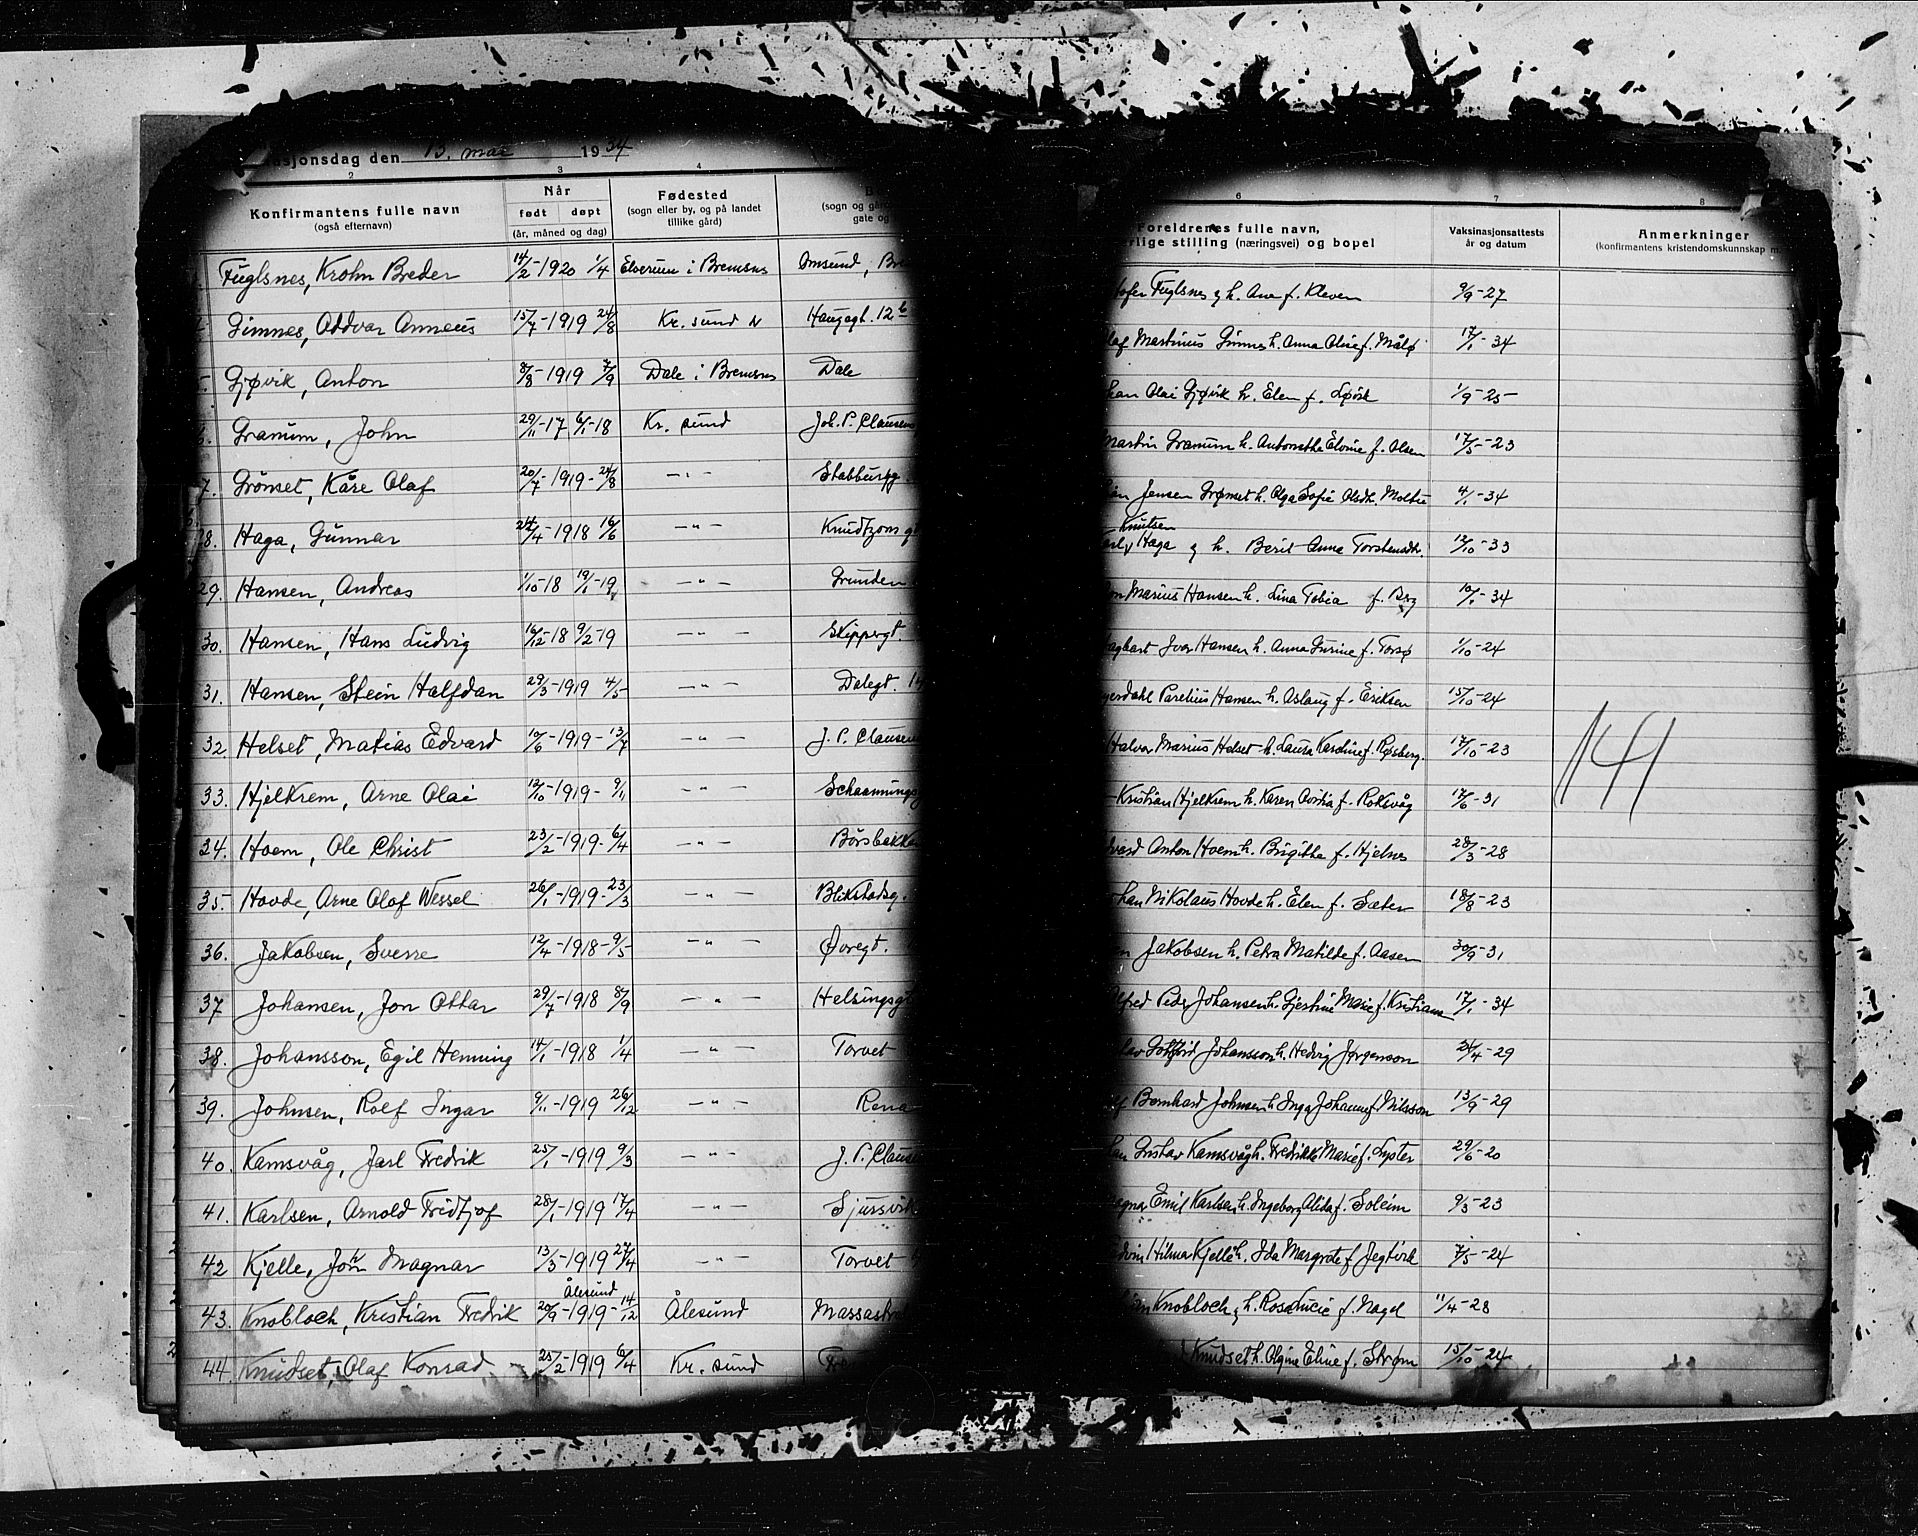 sjonsdag den 13. mai 1934
2 3 4
Konfirmantens fulle navn (også efternavn) Når født døpt (år, måned og dag) Fødested (sogn eller by, og på landet tillike gård) (sogn og går gate og
6 7 8
Foreldrenes fulle navn, rlige stilling (næringsvei) og bopel Vaksinasjonsattests år og datum Anmerkninger (konfirmantens kristendomskunnskap m.
Fuglsnes, Krohn Breder 14/2-1920 1/4 Elverum i Bremsnes Omsund, Br Fuglsnes og h. Ana f. Kleven 9/9-27
Gimnes, Oddvar Anneus 15/7-1919 24/8 Kr. sund N Haugegt. 12 b laf Martinus Gimnes h. Anna Oline f. Målø 17/1-34
Gjøvik, Anton 8/8-1919 7/9 Dale i Bremsnes Dale han Olai Gjøvik h. Elen f. 1/9-25
Granum, John 29/11-17 6/1-18 Kr. sund Joh. P. Clausens Martin Granum h. Antonethe Elovine f. Olsen 17/5-23
7. Grønset, Kåre Olaf 20/7-1919-24/8 -"- Stabbursg. Jensen Grønset h. Olga Sofie Olsdtr. 4/1-34
28. Haga, Gunnar 24/4-1918 16/6 -"- Knudtzons g Knutsen Haga og h. Berit Anna Torstensdtr. 12/10-33
29. Hansen, Andreas 1/10-18 19/1-19 -"- Grunden Marius Hansen h. Lina Tobia f. Berg 10/1-34
30. Hansen, Hans Ludvig 16/12-18 9/2-19 -"- Skippergt. agbart Ivar Hansen h. Anna Gurine f. Torsø 1/10-24
31. Hansen, Stein Halfdan 29/3-1919 4/5 -"- Dalegt. Parelius Hansen h. Aslaug f. Eriksen 15/10-24
32 Helset, Matias Edvard 10/6-1919-13/7 -"- J. P. Clausen Halvor Marius Helset h. Laura Karoline f. Røsberg. 17/10-23
33. Hjelkrem, Arne Olai 12/10-1919-9/11 -"- Schaanningsg Kristian Hjelkrem h. Karen f. Roksvåg 17/6-31
34. Hoem, Ole Christ 23/2-1919-6/4 -"- Børsbakke Anton Hoem h. Brigitha f. Hjelnes 28/3-28
35. Hovde, Arne Olaf Wessel 26/1-1919-23/3 -"- Blikstadsg. han Nikolaus Hovde h. Elen f. Sæter 18/8-23
36. Jakobsen, Sverre 12/4-1918-9/5 -"- Øvregt. Jakobsen h. Petra Matilde f. Aasen 30/9-31
37 Johansen, Jon Ottar 29/7-1918 8/9 -"- Helsingsgt lfred Peder Johansen h. Gjertine Marie f. Kristians 17/1-34
38. Johansson, Egil Henning 14/1-1918 1/4 -"- Torvet Gottfrid Johansson h. Hedvig Jørgenson 24/4-29
39. Johnsen, Rolf Ingar 9/11-1919 26/12 -"- Rena Bernhard Johnsen h. Inga Johanne f. Nilsson 13/9-29
40. Kamsvåg, Jarl Fredrik 25/1-1919 9/3 -"- J. P. Claus Gustav Kamsvåg h. Fredrikke Marie f. Lyster 29/6-20
41. Karlsen, Arnold Fridtjof 28/1-1919 17/4 -"- Sjursvik agnar Emil Karlsen h. Ingeborg Alida f. Soleim 9/3-23
42 Kjelle, John Magnar 13/3-1919 27/4 -"- Torvet dvin Hilmar Kjelle h. Ida Margrete f. Jegtvik 7/5-24
43. Knobloch, Kristian Fredrik 20/9-1919-14/12 Ålesund Ålesund Knobloch og h. Rosa Lucie f. Nagel 11/4-28
44. Knudset, Olaf Konrad 25/2-1919 6/4 Kr. sund Knudset h. Olgine Eline f. Strøm 15/10-24
141